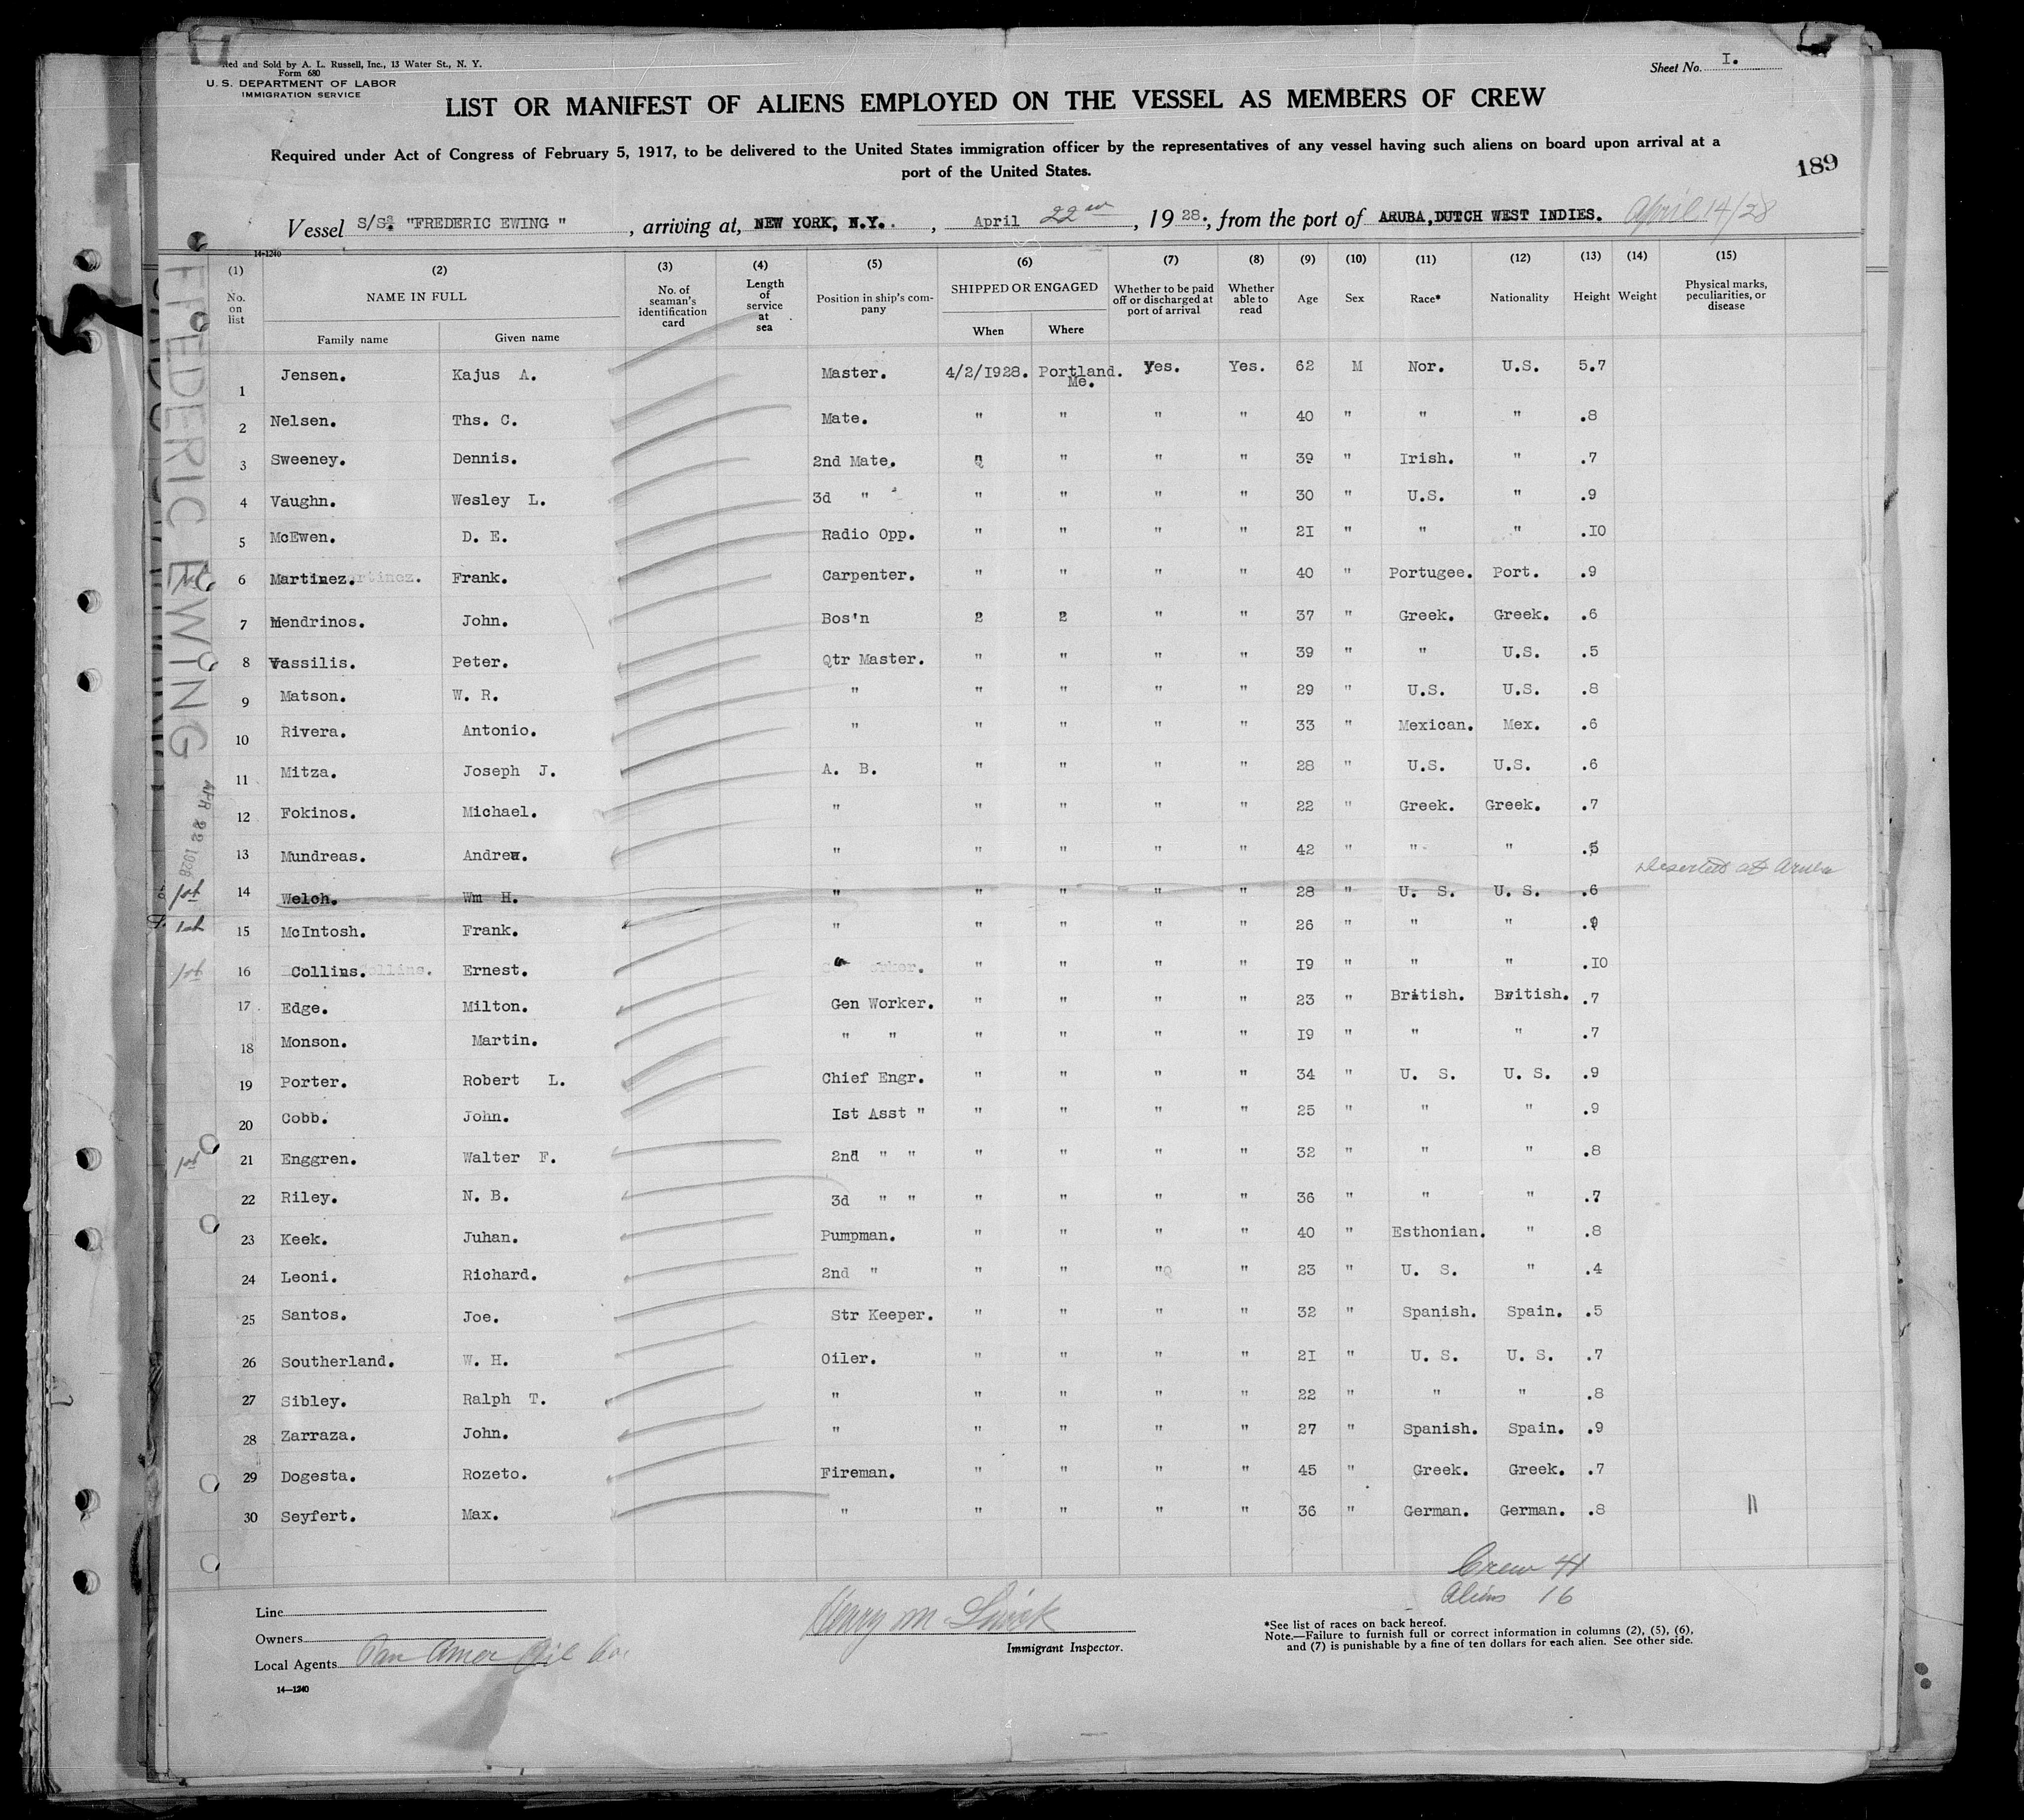 ted and Sold by A. L. Russell, Inc., 13 Water St., N. Y.
Form 680
U. S. DEPARTMENT OF LABOR
IMMIGRATION SERVICE
Sheet No. I.
LIST OR MANIFEST OF ALIENS EMPLOYED ON THE VESSEL AS MEMBERS OF CREW
Required under Act of Congress of February 5, 1917, to be delivered to the United States immigration officer by the representatives of any vessel having such aliens on board upon arrival at a
port of the United States.
189
Vessel S/S. "FREDERIC EWING" , arriving at, NEW YORK, N.Y. , April 22nd , 1928., from the port of ARUBA, DUTCH WEST INDIES. April 14/28
14-1240
(1) (2) (3) (4) (5) (6) (7) (8) (9) (10) (11) (12) (13) (14) (15)
No. on list NAME IN FULL Family name Given name No. of seaman's identification card Length of service at sea Position in ship's company SHIPPED OR ENGAGED When Where Whether to be paid off or discharged at port of arrival Whether able to read Age Sex Race* Nationality Height Weight Physical marks, peculiarities, or disease
FREDERIC EWING
APR 22 1928
1 Jensen. Kajus A. Master. 4/2/1928. Portland. Me. Yes. Yes. 62 M Nor. U.S. 5.7
2 Nelsen. Ths. C. Mate. " " " " 40 " " " .8
3 Sweeney. Dennis. 2nd Mate. " " " " 39 " Irish. " .7
4 Vaughn. Wesley L. 3d " " " " " 30 " U.S. " .9
5 McEwen. D. E. Radio Opp. " " " " 2I " " " .I0
6 Martinez. Frank. Carpenter. " " " " 40 " Portugee. Port. .9
7 Mendrinos. John. Bos'n 2 2 " " 37 " Greek. Greek. .6
8 Vassilis. Peter. Qtr Master. " " " " 39 " " U.S. .5
9 Matson. W. R. " " " " " 29 " U.S. U.S. .8
10 Rivera. Antonio. " " " " " 33 " Mexican. Mex. .6
11 Mitza. Joseph J. A. B. " " " " 28 " U.S. U.S. .6
12 Fokinos. Michael. " " " " " 22 " Greek. Greek. .7
13 Mundreas. Andrew. " " " " " 42 " " " .5
1st 14 Welch. Wm H. " " " " " 28 " U. S. U. S. .6 Deserted at Aruba
1st 15 McIntosh. Frank. " " " " " 26 " " " .9
1st 16 Collins. Ernest. " " " " " I9 " " " .I0
17 Edge. Milton. Gen Worker. " " " " 23 " British. British. .7
18 Monson. Martin. " " " " " " I9 " " " .7
19 Porter. Robert L. Chief Engr. " " " " 34 " U. S. U. S. .9
20 Cobb. John. Ist Asst " " " " " 25 " " " .9
1st 21 Enggren. Walter F. 2nd " " " " " " 32 " " " .8
22 Riley. N. B. 3d " " " " " " 36 " " " .7
23 Keek. Juhan. Pumpman. " " " " 40 " Esthonian. " .8
24 Leoni. Richard. 2nd " " " " " 23 " U. S. " .4
25 Santos. Joe. Str Keeper. " " " " 32 " Spanish. Spain. .5
26 Southerland. W. H. Oiler. " " " " 2I " U. S. U. S. .7
27 Sibley. Ralph T. " " " " " 22 " " " .8
28 Zarraza. John. " " " " " 27 " Spanish. Spain. .9
29 Dogesta. Rozeto. Fireman. " " " " 45 " Greek. Greek. .7
30 Seyfert. Max. " " " " " 36 " German. German. .8 11
Crew 41
Aliens 16
Line
Owners
Local Agents Pan Amer Oil Co.
14—1240
Henry M
Immigrant Inspector.
*See list of races on back hereof.
Note.—Failure to furnish full or correct information in columns (2), (5), (6),
and (7) is punishable by a fine of ten dollars for each alien. See other side.